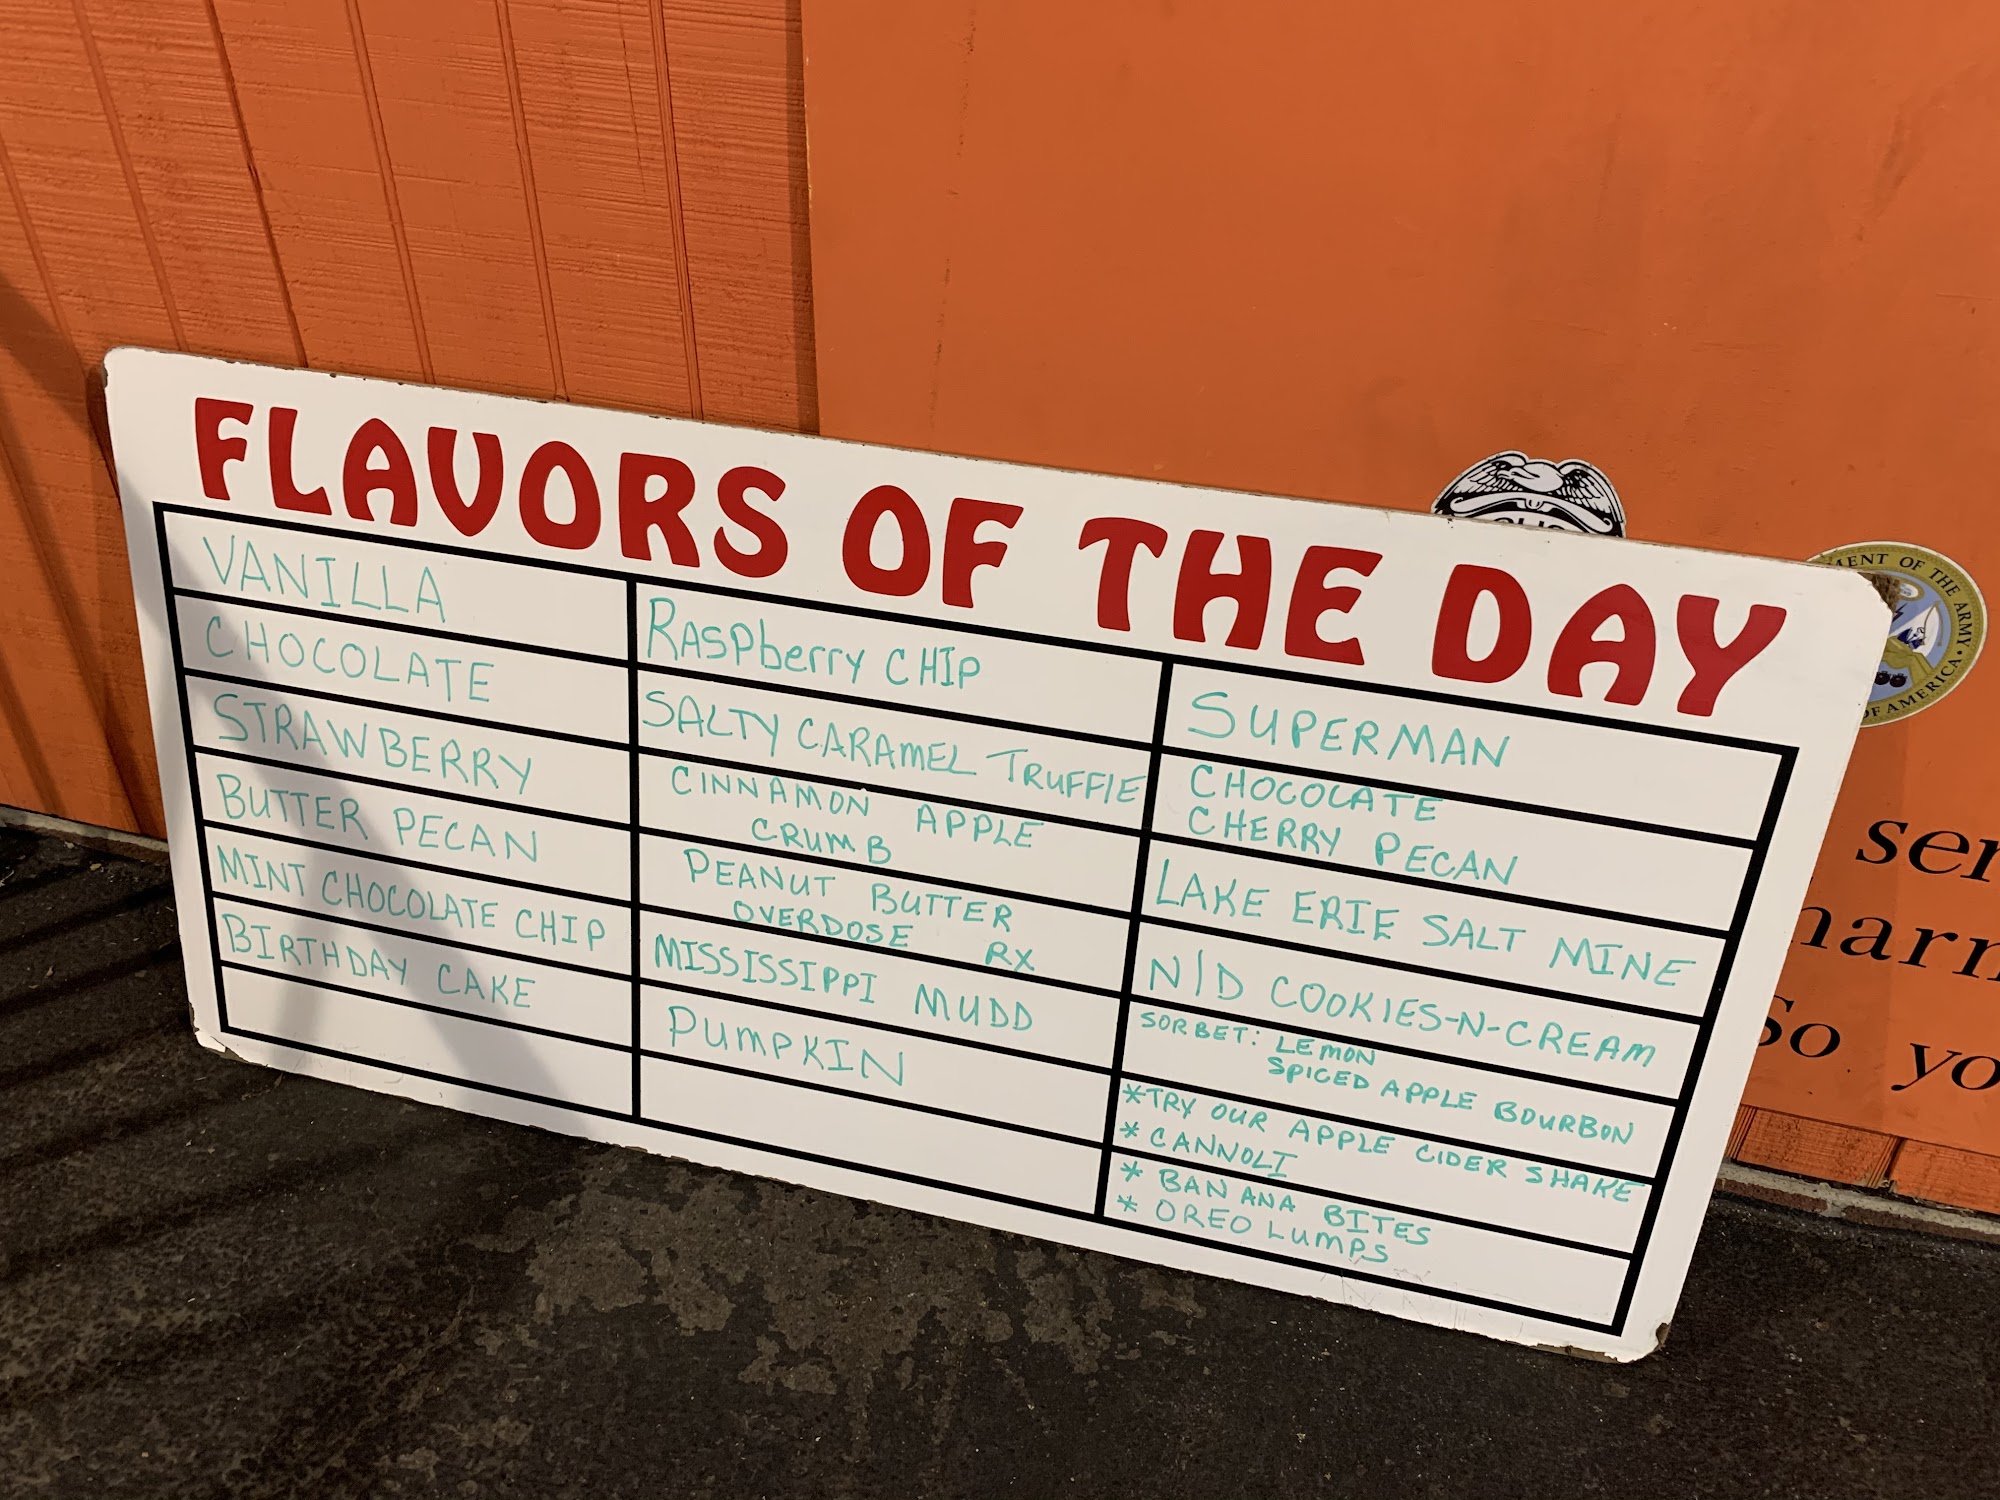 FLAVORS OF THE DAY
VANILLA
CHOCOLATE
STRAWBERRY
BUTTER PECAN
MINT CHOCOLATE CHIP
BIRTHDAY CAKE
RASPberry CHIP
SALTY CARAMEL TRUFFlE
CINNAMON APPLE
CRUMB
PEANUT BUTTER
OVERDOSE RX
MISSISSIPPI MUDD
PUMPKIN
SUPERMAN
CHOCOLATE
CHERRY PECAN
LAKE ERIE SALT MINE
N/D COOKIES-N-CREAM
SORBET: LEMON
SPICED APPLE BOURBON
*TRY OUR APPLE CIDER SHAKE
* CANNOLI
* BANANA BITES
* OREO LUMPS
OF THE ARMY
OF AMERICA
So yo